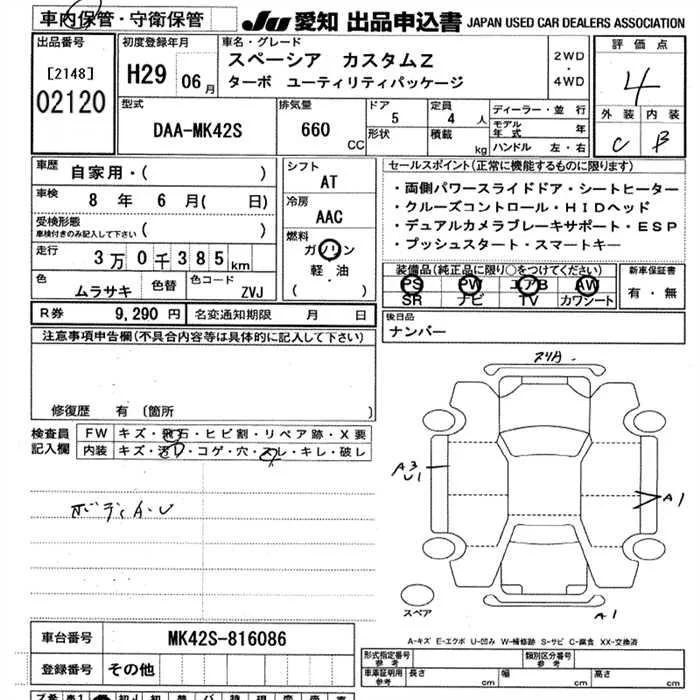 車内保管・守衛保管
JU 愛知 出品申込書 JAPAN USED CAR DEALERS ASSOCIATION
出品番号
[2148]
02120
初度登録年月
H29 06月
車名・グレード
スペーシア カスタムZ
ターボ ユーティリティパッケージ
2WD
・
4WD
評価点
4
外装 内装
C B
型式
DAA-MK42S
排気量
660
CC
ドア
5
形状
定員
4 人
積載
kg
ディーラー・並行
モデル
年式 年
ハンドル 左・右
車歴
自家用・( )
車検
8 年 6 月( 日)
受検形態
車検付きのみ記入して下さい ( )
走行
3万0千385km
色
ムラサキ
色替
色コード
ZVJ
シフト
AT
冷房
AAC
燃料
ガソリン
軽・油
( )
セールスポイント(正常に機能するものに限ります)
・両側パワースライドドア・シートヒーター
・クルーズコントロール・HIDヘッド
・デュアルカメラブレーキサポート・ESP
・プッシュスタート・スマートキー
装備品(純正品に限り○をつけてください)
PS PW エアB AW
SR ナビ TV カワシート
新車保証書
有・無
R券 9,290 円
名変通知期限 月 日
後日品
ナンバー
注意事項申告欄(不具合内容等は具体的に記入して下さい)
修復歴 有 (箇所 )
検査員
記入欄
FW キズ・飛石・ヒビ割・リペア跡・X要
内装 キズ・汚れ・コゲ・穴・スレ・キレ・破レ
ボディA・U
A3
U1
A1
A1
スペア
A-キズ E-エクボ U-凹み W-補修跡 S-サビ C-腐食 XX-交換済
車台番号 MK42S-816086
登録番号 その他
形式指定番号
参考
類別区分番号
参考
車庫証明用
参考
長さ cm 幅 cm 高さ cm